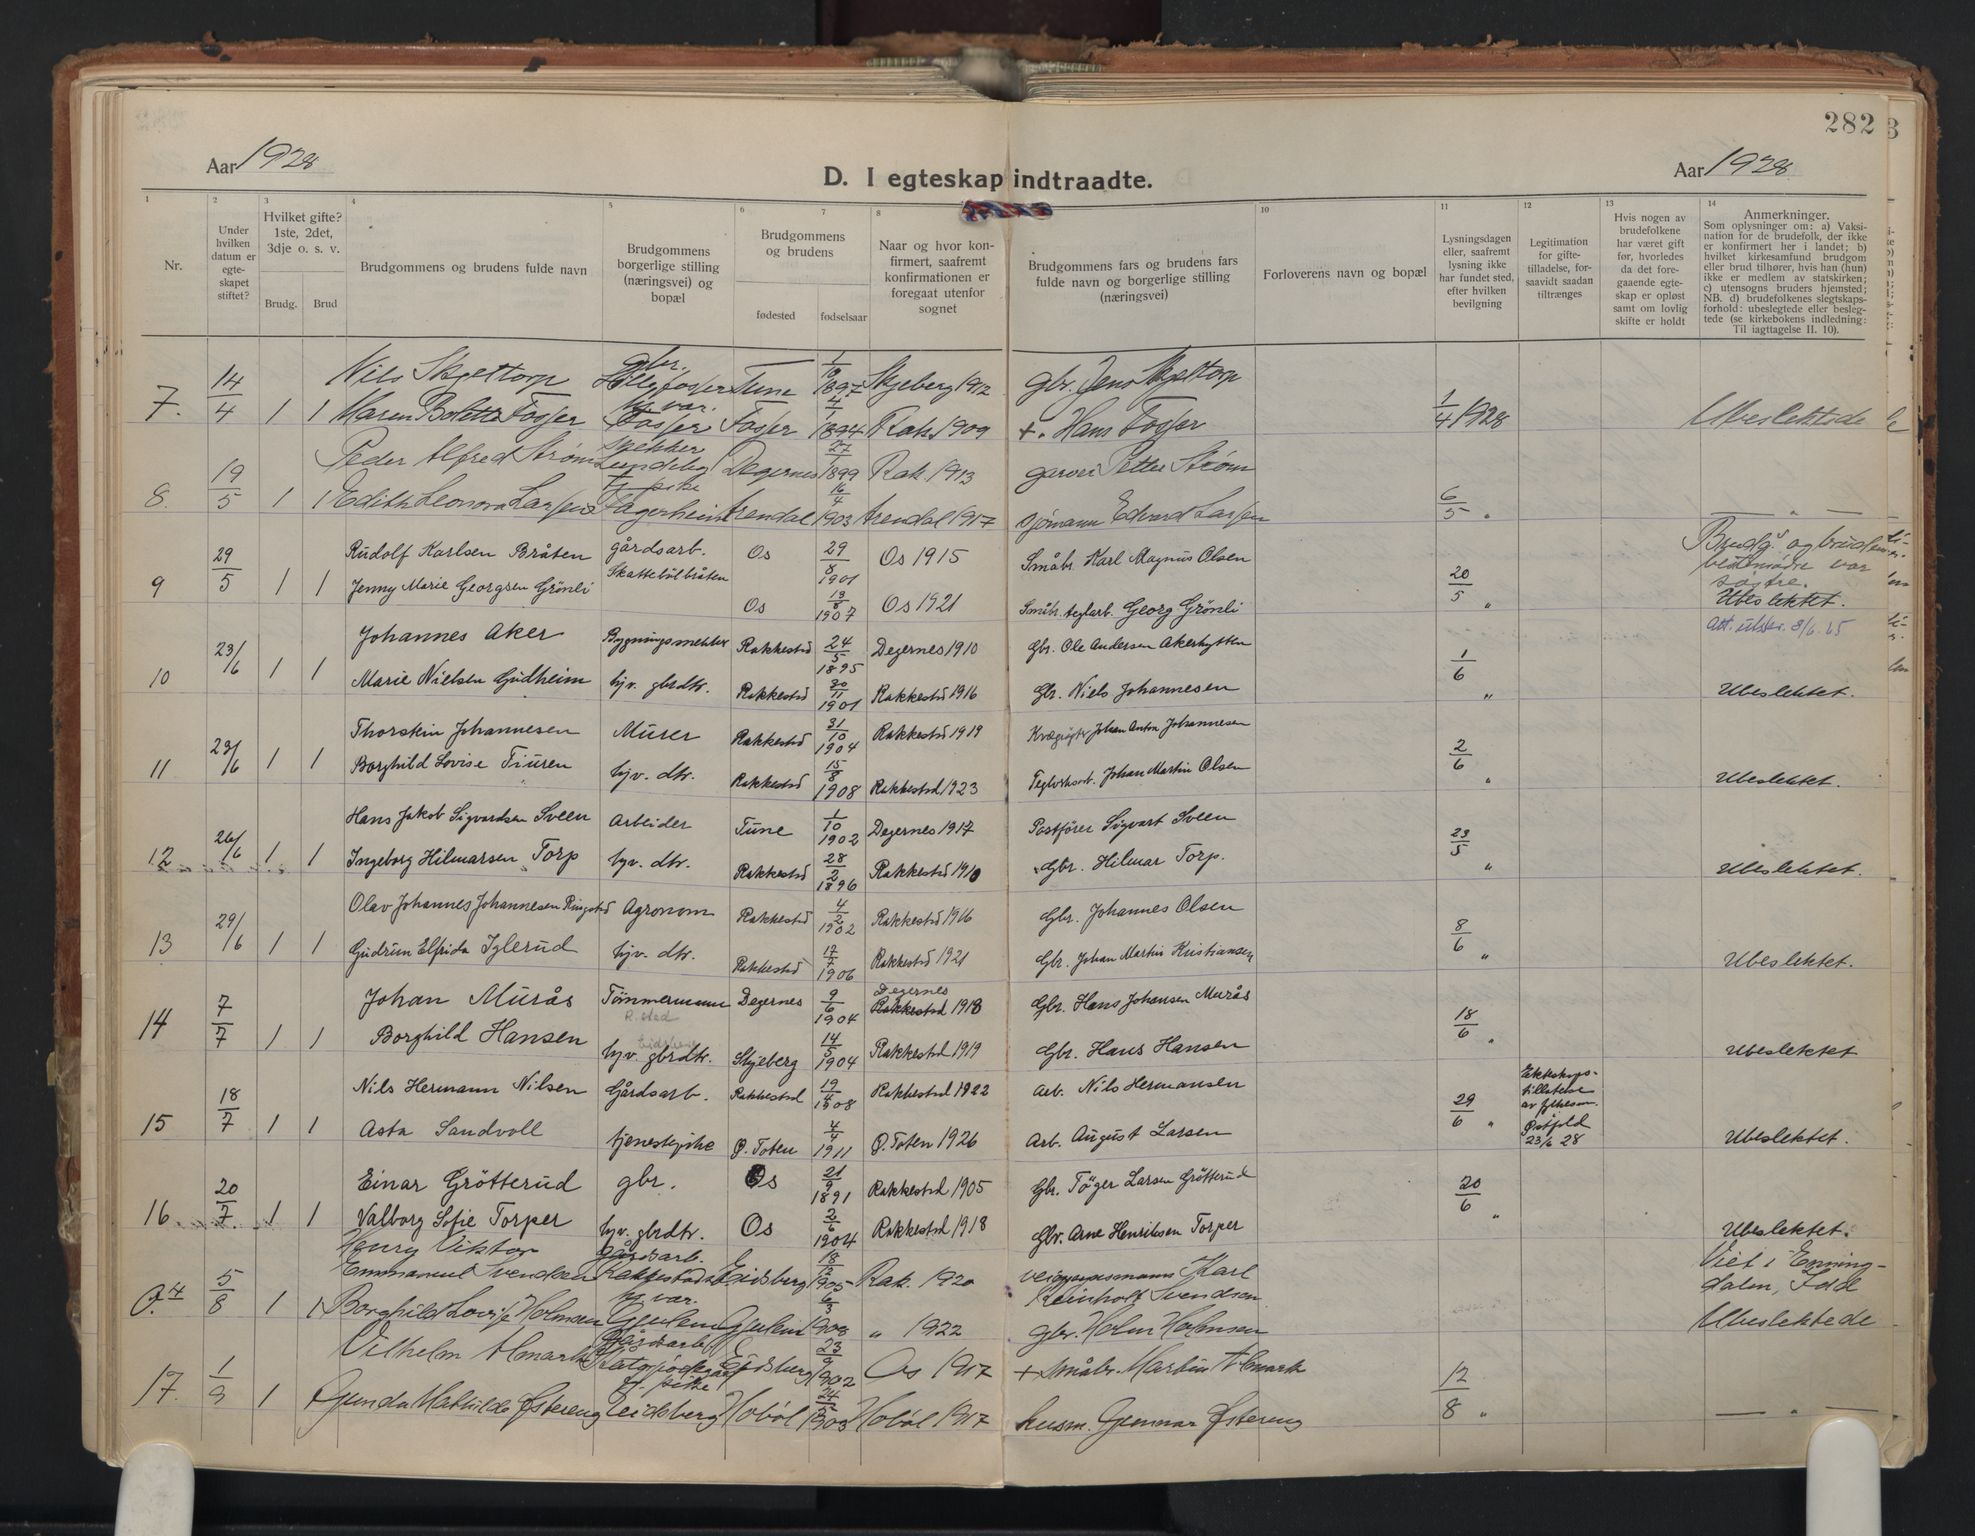 282
Aar 1928
D. I egteskap indtraadte.
Aar 1928
1 2 3 4 5 6 7 8 10 11 12 13 14
Nr.
Under hvilken datum er egte-skapet stiftet?
Hvilket gifte? 1ste, 2det, 3dje o. s. v.
Brudg. Brud
Brudgommens og brudens fulde navn
Brudgommens borgerlige stilling (næringsvei) og bopæl
Brudgommens og brudens
fødested fødselsaar
Naar og hvor kon-firmert, saafremt konfirmationen er foregaat utenfor sognet
Brudgommens fars og brudens fars fulde navn og borgerlige stilling (næringsvei)
Forloverens navn og bopæl
Lysningsdagen eller, saafremt lysning ikke har fundet sted, efter hvilken bevilgning
Legitimation for gifte-tilladelse, for-saavidt saadan tiltrænges
Hvis nogen av brudefolkene har været gift før, hvorledes da det fore-gaaende egte-skap er opløst samt om lovlig skifte er holdt
Anmerkninger.
Som oplysning om: a) Vaksi-nation for de brudefolk, der ikke er konfirmert her i landet; b) hvilket kirkesamfund brudgom eller brud tilhører, hvis han (hun) ikke er medlem av statskirken; c) utensogns bruders hjemsted; NB. d) brudefolkenes slegtskaps-forhold: ubeslegtede eller besleg-tede (se kirkebokens indledning: Til iagttagelse II. 10).
Nils Skjeltorp gbr. Tune 1897 Skjeberg 1912 gbr. Jens Skjeltorp
7. 14/4 1 1 Maren Bolette Fosser Fosser Fosser 4/1 1894 Rak. 1909 + Hans Fosser 1/4 1928 Ubeslektede
Peder Alfred Strøm Lundeby Degernes 27/ 1899 Rak. 1913 garver Petter Strøm
8. 19/5 1 1 Edith Leonora Larsen Fagerheim Arendal 16/4 1903 Arendal 1917 sjømann Edvard Larsen 6/5 " — " —
Rudolf Karlsen Bråten gårdsarb. Skattebölbråten Os 29/8 1901 Os 1915 Småbr. Karl Magnus Olsen Brudg.s og brudens
9 29/5 1 1 Jenny Marie Georgsen Grönli Os 13/8 1907 Os 1921 Småbr. teglarb. Georg Grönli 20/5 " bestemödre var søstre. Ubeslektet.
Att. utst. 8/6. 65
Johannes Aker Bygningssnekker Rakkestad 24/5 1895 Degernes 1910 Gbr. Ole Andersen Akerhytten
10 23/6 1 1 Marie Nielsen Gudheim hjv. gbrdtr. Rakkestad 30/11 1901 Rakkestad 1916 Gbr. Niels Johannesen 1/6 " Ubeslektet.
Thorstein Johannesen Murer Rakkestad 31/10 1904 Rakkestad 1919 Johan Anton Johannesen
11 23/6 1 1 Borghild Lovise Tiuren hjv. dtr. Rakkestad 15/8 1908 Rakkestad 1923 Teglverksarb. Johan Martin Olsen 2/6 " Ubeslektet.
Hans Jakob Sigvardsen Sveen Arbeider Tune 1/10 1902 Degernes 1917 Postfører Sigvart Sveen
12 26/6 1 1 Ingeborg Hilmarsen Torp hjv. dtr. Rakkestad 28/2 1896 Rakkestad 1910 Gbr. Hilmar Torp. 23/5 " Ubeslektet.
Olav Johannes Johannesen Ringstad Agronom Rakkestad 4/2 1902 Rakkestad 1916 Gbr. Johannes Olsen
13 29/6 1 1 Gudrun Elfrida Iglerud hjv. dtr. Rakkestad 17/7 1906 Rakkestad 1921 Gbr. Johan Martin Kristiansen 8/6 " Ubeslektet.
Johan Murås Tömmermann R.stad Degernes 9/6 1904 Degernes Rakkestad 1918 Gbr. Hans Johansen Murås
14 7/7 1 1 Borghild Hansen Eidsberg hjv. gbrdtr. Skjeberg 14/5 1904 Rakkestad 1919 Gbr. Hans Hansen 18/6 " Ubeslektet
Nils Hermann Nilsen Gårdsarb. Rakkestad 19/4 1908 Rakkestad 1922 Arb. Nils Hermansen Ekteskaps-tillatelse av fylkesm. Østfold 23/6 28
15 18/7 1 1 Asta Sandvoll tjenestepike Ø. Toten 4/4 1911 Ø. Toten 1926 Arb. August Larsen 29/6 " Ubeslektet.
Einar Grötterud gbr. Os 21/9 1891 Rakkestad 1905 Gbr. Töger Larsen Grötterud
16 20/7 1 1 Valborg Sofie Torper hjv. gbrdtr. Os 2/6 1904 Rakkestad 1918 Gbr. Arne Henriksen Torper 20/6 " Ubeslektet.
Henry Viktor Emmanuel Svendsen gårdsarb. Rakkestad Eidsberg 18/ 1905 Rak. 1920 Karl Reinholt Svendsen Viet i Enning-dalen, Idd
5/8 1 1 Borghild Lovise Holmsen 6/3 1908 " 1922 gbr. Holm Holmsen Ubeslektede
Vilhelm Almark gårdsarb. Eidsberg 23/9 1902 Os 1917 + småbr. Martin Almark
17. 1/9 1 Gunda Mathilde Østereng tj. pike Eidsberg Hobøl 24/ 1903 Hobøl 1917 husm. Gunnar Østereng 12/8 " — " —